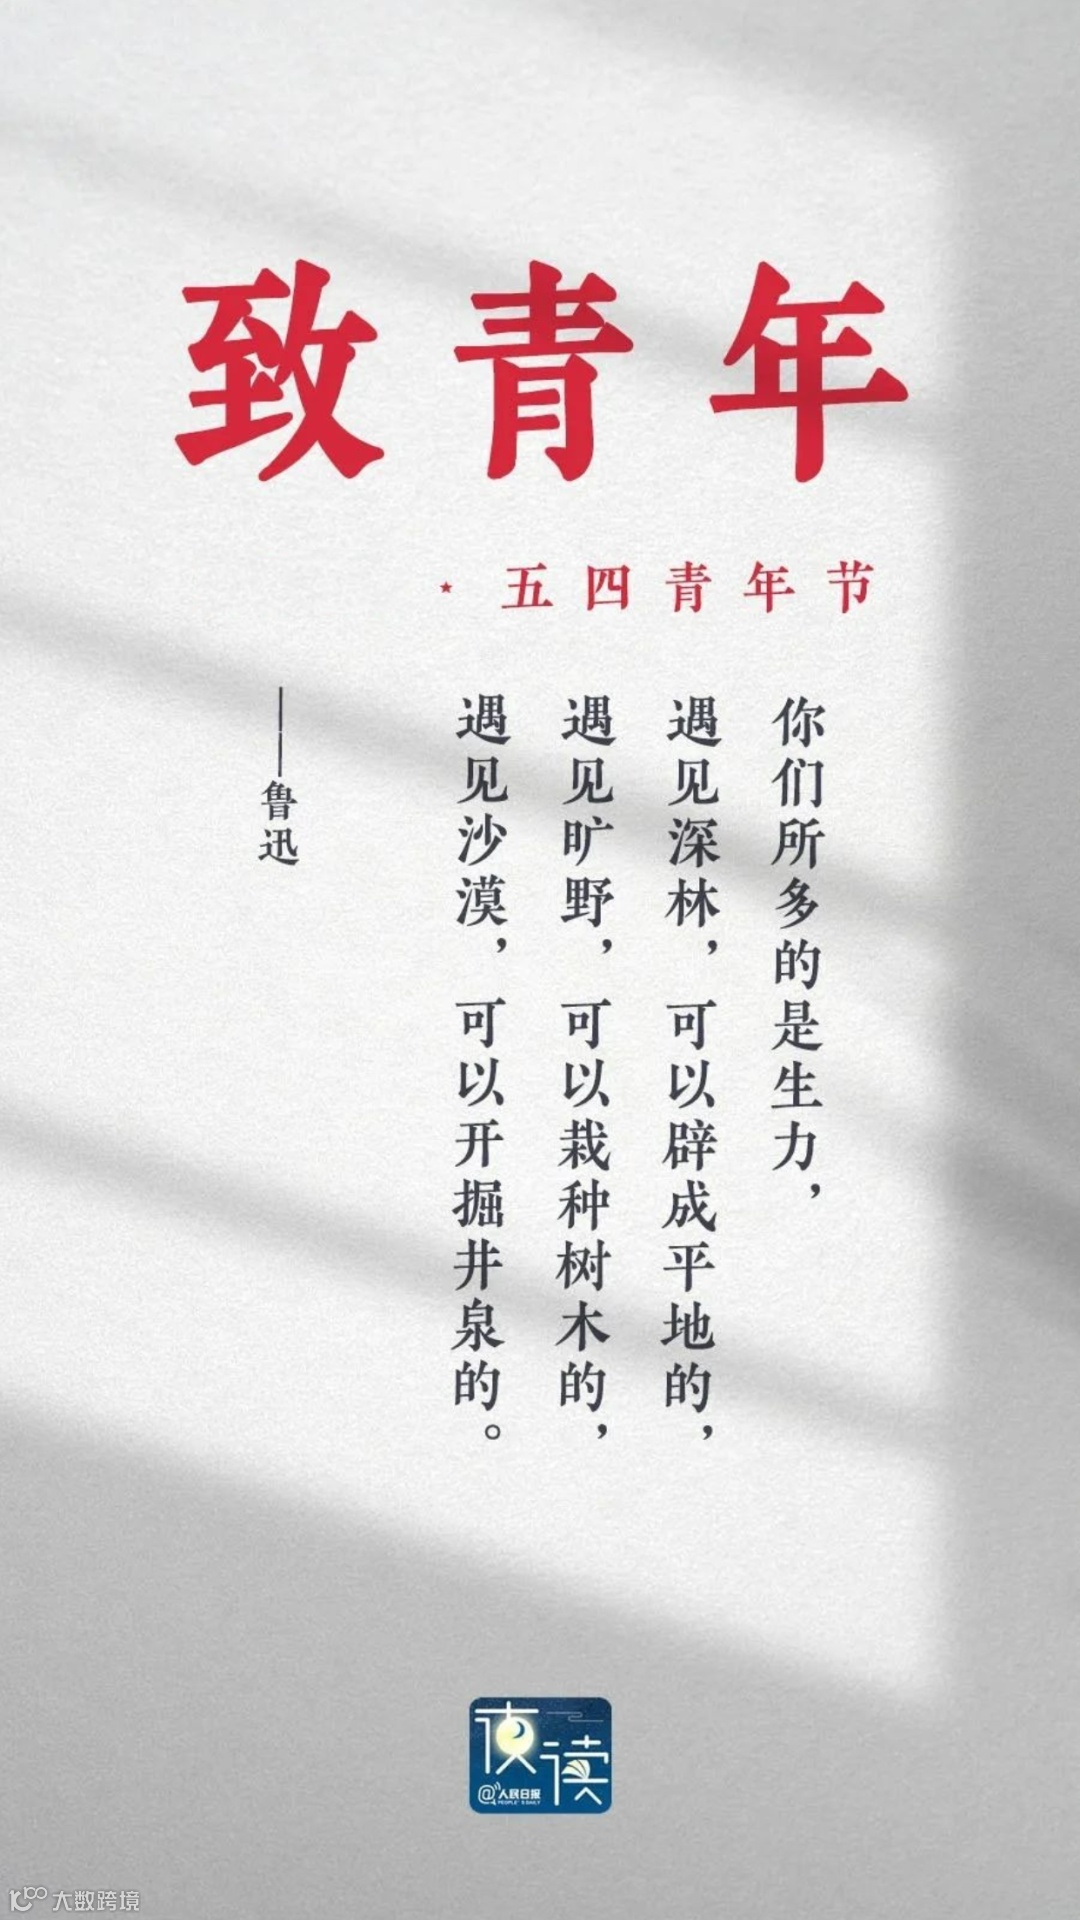 致青年
★ 五四青年节
你们所多的是生力，
遇见深林，可以辟成平地的，
遇见旷野，可以栽种树木的，
遇见沙漠，可以开掘井泉的。
——鲁迅
夜读
@人民日报
PEOPLE'S DAILY
大数跨境